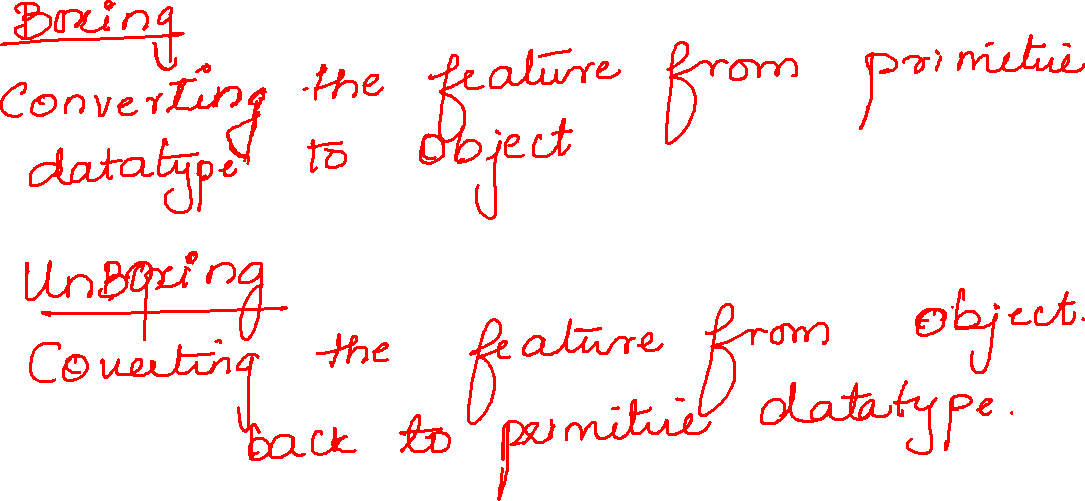 Boxing
Converting the feature from primitie
datatype to object
UnBoxing
Coverting the feature from object.
back to primitie datatype.